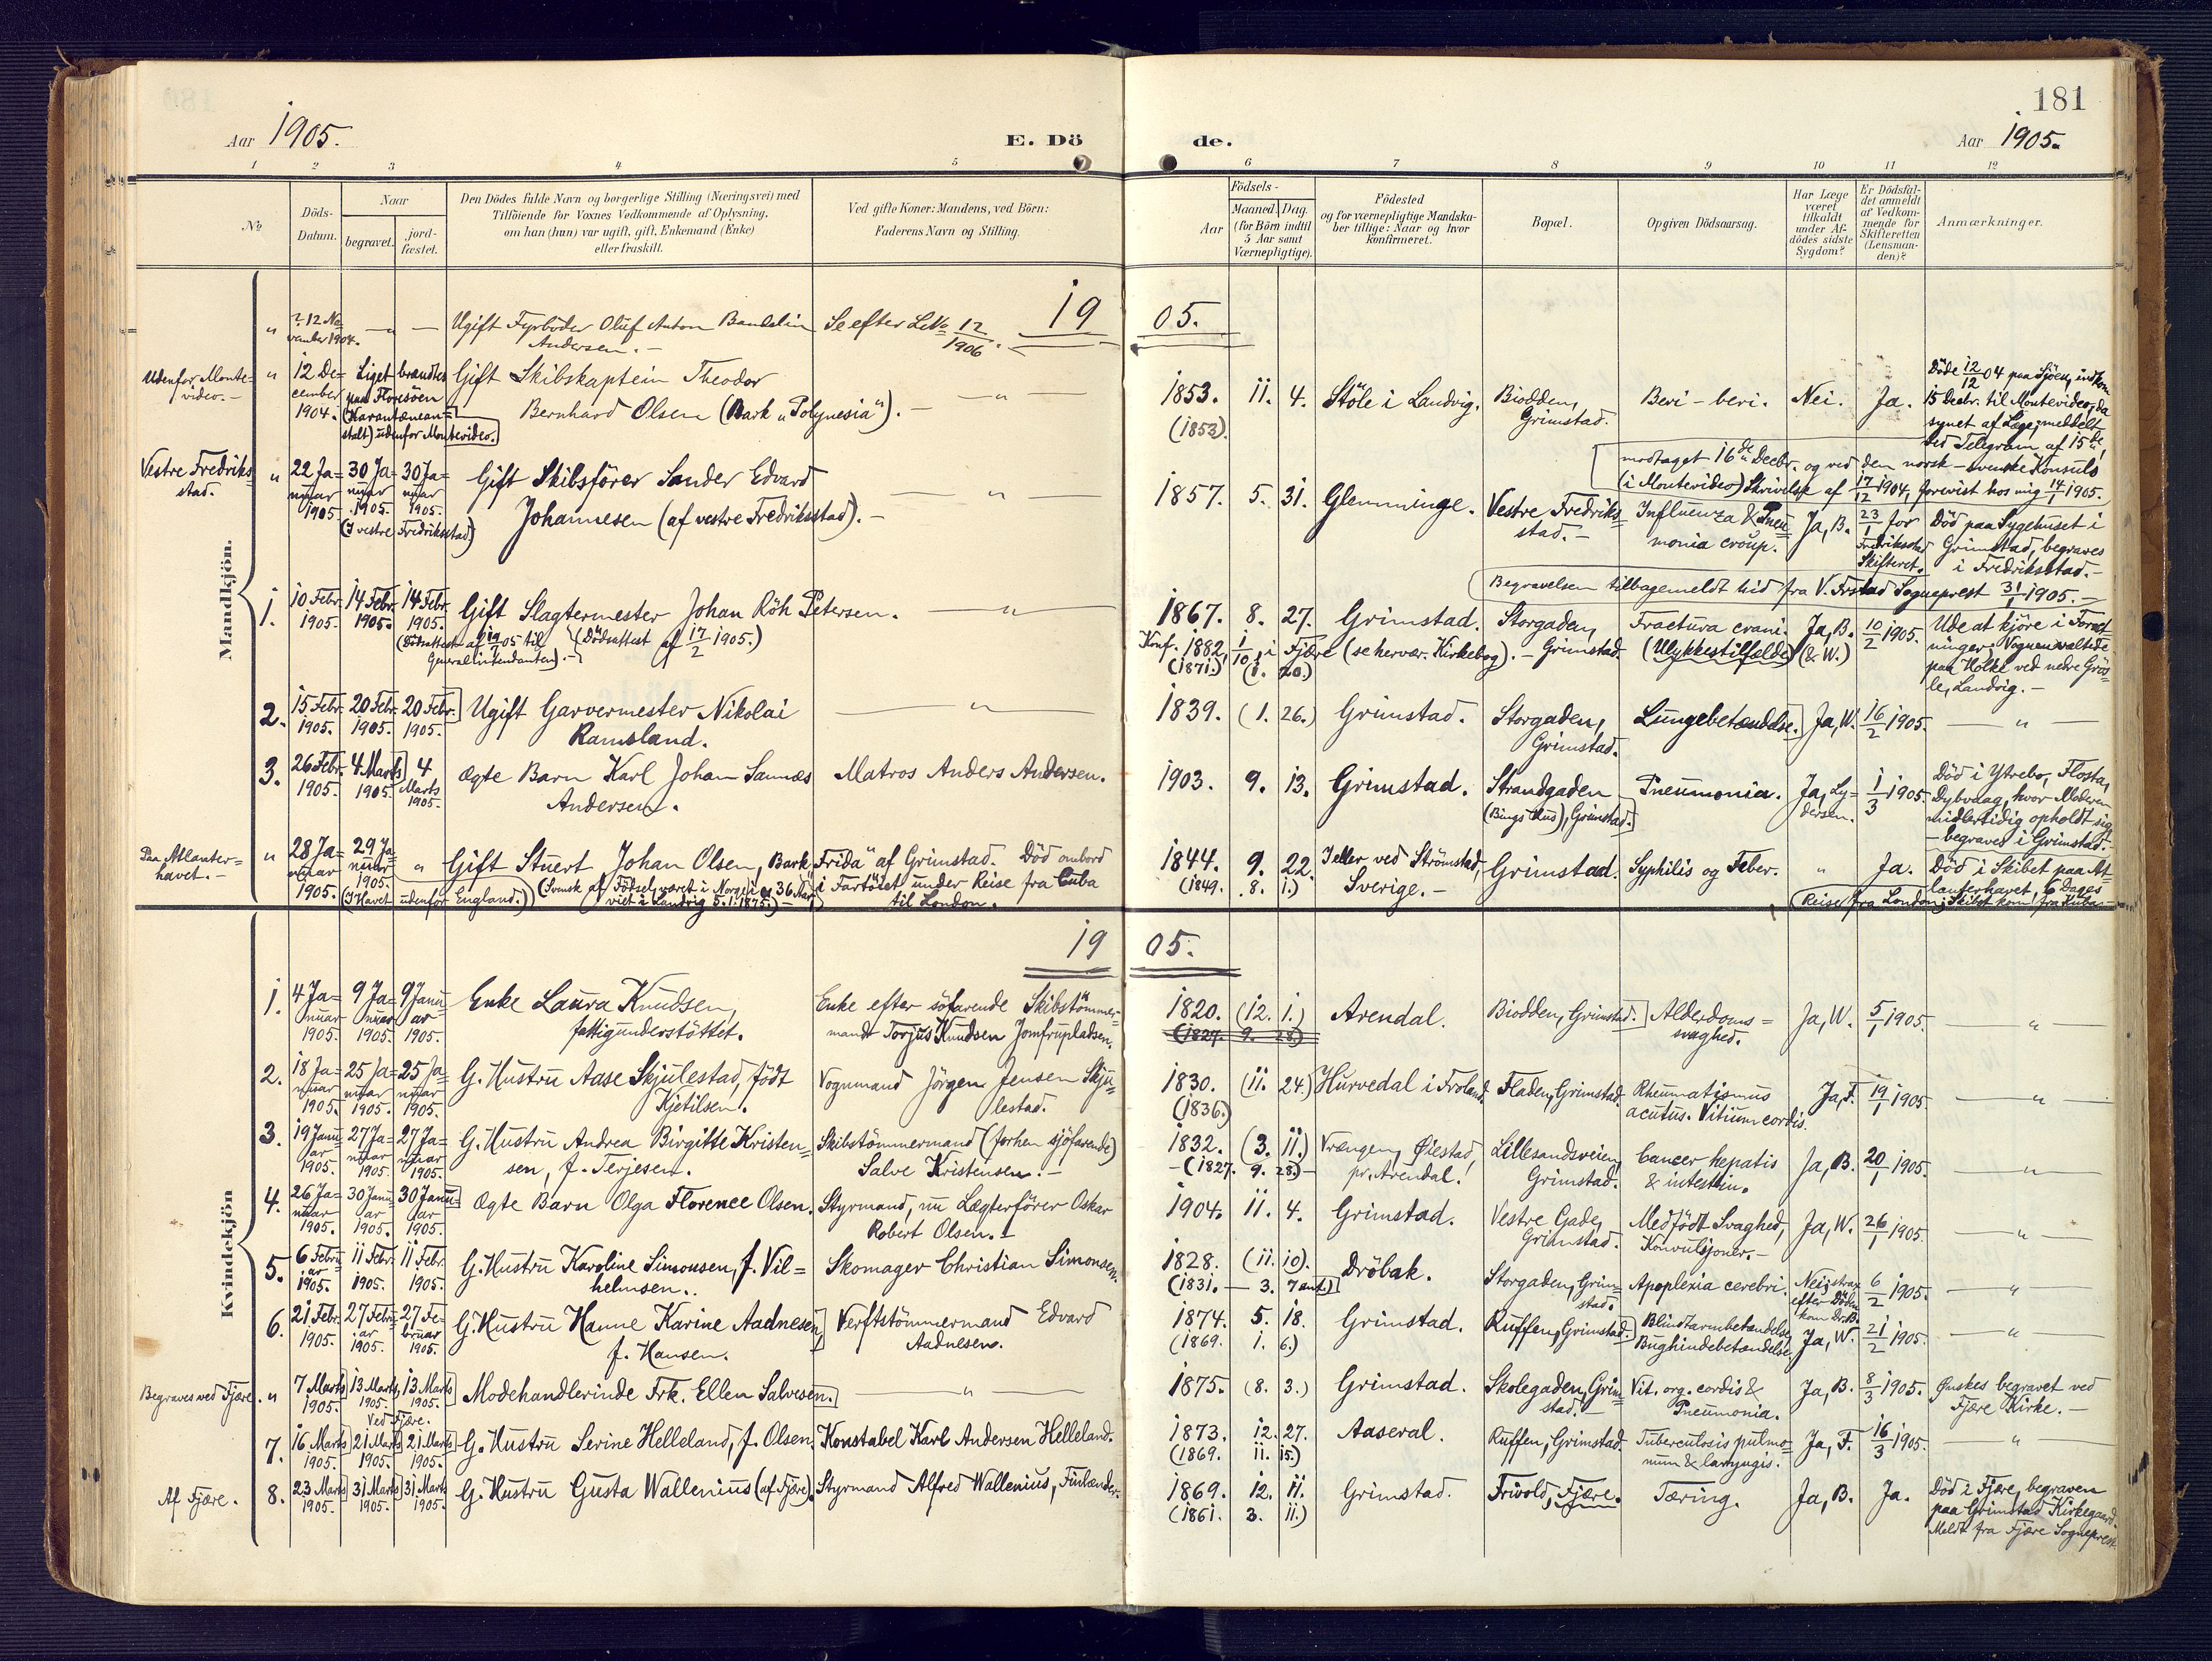 181
Aar 1905.
E. Dö
de.
Aar 1905.
1 2 3 4 5 6 7 8 9 10 11 12
No
Döds-
Datum.
Naar
begravet.
jord-
fæstet.
Den Dödes fulde Navn og borgerlige Stilling (Næringsvei) med
Tilföiende for Voxnes Vedkommende af Oplysning,
om han (hun) var ugift, gift, Enkemand (Enke)
eller fraskilt.
Ved gifte Koner: Mandens, ved Börn:
Faderens Navn og Stilling.
Födsels-
Aar
Maaned. Dag.
(for Börn indtil
5 Aar samt
Værnepligtige).
Födested
og for værnepligtige Mandska-
ber tillige: Naar og hvor
konfirmeret.
Bopæl.
Opgiven Dödsaarsag.
Har Læge
været
tilkaldt
under Af-
dödes sidste
Sygdom?
Er Dödsfal-
det anmeldt
af Vedkom-
mende for
Skifteretten
(Lensman-
den)?
Anmærkninger.
Mandkjön.
19 05.
" ? 12 No-
vember 1904. — " —
Ugift Fyrböder Oluf Anton Bandelin
Andersen. —
Se efter LNo 12/1906.
Udenfor Monte-
video. —
" 12 De-
cember
1904.
Liget brændtes
paa Floresöen
(Karantænean-
stalt) udenfor Montevideo.
Gift Skibskaptein Theodor
Bernhard Olsen (Bark "Polynesia"). —
— " —
1853. 11. 4.
(1853).
Stöle i Landvig.
Biodden,
Grimstad.
Beri-beri.
Nei.
Ja.
Döde 12/12 04 paa Sjöen, indkom
15 Decbr. til Montevideo, da
synet af Læge; meddelt
ved Telegram af 15de,
modtaget 16de Decbr. og ved den norsk-svenske Konsuls
(i Montevideo) Skrivelse af 17/12 1904, forevist hos mig 14/1 1905.
Vestre Fredriks-
stad.
" 22 Ja-
nuar
1905
30 Ja-
nuar
1905.
30 Ja-
nuar
1905.
(I vestre Fredriksstad)
Gift Skibsförer Sander Edvard
Johannesen (af vestre Fredriksstad). —
— " —
1857. 5. 31.
Glemminge.
Vestre Fredriks-
stad. —
Influenza & Pneu-
monia croup.
Ja, B.
23/1 for
Fredriksstad
Skifteret.
Död paa Sygehuset i
Grimstad, begraves
i Fredriksstad. —
Begravelsen tilbagemeldt hid fra V. Frstad Sogneprest 31/1 1905. —
1. 10 Febr.
1905.
14 Febr.
1905.
14 Febr.
1905.
Gift Slagtermester Johan Röh Petersen.
(Dödsattest af 17/2 1905.)
— " —
1867. 8. 27.
Konf. 1882, 1/10, i Fjære (se herv ær. Kirkebog). —
(1871.) (1. 20.)
Grimstad.
Storgaden,
Grimstad.
Fractura crani.
(Ulykkestilfælde)
Ja, B.
(& W.)
10/2 1905.
Ude at kjöre i Forret-
ninger, Vognen væltede
paa Holte ved nedre Grös-
le, Landvig. —
2. 15 Febr.
1905.
20 Febr.
1905.
20 Febr.
1905.
Ugift Garvermester Nikolai
Ramsland.
— " —
1839. (1. 26.)
Grimstad.
Storgaden,
Grimstad.
Lungebetændelse.
Ja, W.
16/2 1905.
— " —
3. 26 Febr.
1905.
4 Marts
1905.
4
Marts
1905.
Ægte Barn Karl Johan Sannæs
Andersen.
Matros Anders Andersen.
1903. 9. 13.
Grimstad.
Strandgaden
(Bings Hus), Grimstad.
Pneumonia.
Ja, Ly-
dersen.
1/3 1905.
Död i Ytrebö, Flosta,
Dybvaag, hvor Moderen
midlertidig opholdt sig
— begravet i Grimstad. —
Paa Atlanter-
havet. —
" 28 Ja-
nuar
1905.
29 Ja-
nuar
1905.
"
(I Havet udenfor England.)
Gift Stuert Johan Olsen, Bark "Frida" af Grimstad. Död ombord
(Svensk af Födsel, været i Norge i ca 36 Aar,
viet i Landvig 5.1.1875.) —
i Fartöiet under Reise fra Cuba
til London.
1844. 9. 22.
(1849. 8. 1.)
I eller ved Strömstad,
Sverige. —
Grimstad.
Syphilis og Feber.
"
Ja.
Död i Skibet paa At-
lanterhavet, 6 Dages
Reise fra London; Skibet kom fra Kuba —
Kvindekjön
19 05.
1. 4 Ja-
nuar
1905.
9 Ja-
nuar
1905.
9 Janu-
ar
1905.
Enke Laura Knudsen,
fattigunderstöttet.
Enke efter söfarende Skibstömmer-
mand Torjus Knudsen Jomfrupladsen.
1820. (12. 1.)
(1827. 9. 28)
Arendal.
Biodden, Grimstad.
Alderdoms-
svaghed.
Ja, W.
5/1 1905.
— " —
2. 18 Ja-
nuar
1905.
25 Ja-
nuar
1905.
25 Ja-
nuar
1905.
G. Hustru Aase Skjulestad, födt
Kjetilsen.
Vognmand Jörgen Jensen Skju-
lestad.
1830. (11. 24.)
(1836.)
Hurvedal i Froland.
Fladen, Grimstad.
Rheumatismus
acutus. Vitium cordis.
Ja, F.
19/1 1905.
— " —
3. 19 Janu-
ar
1905.
27 Ja-
nuar
1905.
27 Ja-
nuar
1905.
G. Hustru Andrea Birgitte Kristen-
sen, f. Terjesen.
Skibstömmermand (forhen sjöfarende)
Salve Kristensen. —
1832. (3. 11.)
— (1827. 9. 28) —
Vrængen, Öiestad,
pr. Arendal!
Lillesandsveien,
Grimstad.
Cancer hepatis
& intestin.
Ja, B.
20/1 1905.
— " —
4. 26 Ja-
nuar
1905.
30 Janu-
ar
1905.
30 Janu-
ar
1905.
Ægte Barn Olga Florence Olsen.
Styrmand, nu Lægterförer Oskar
Robert Olsen. —
1904. 11. 4.
Grimstad.
Vestre Gade,
Grimstad.
Medfödt Svaghed,
Konvulsjoner. —
Ja, W.
26/1 1905.
— " —
5. 6 Febru-
ar
1905.
11 Febr.
1905.
11 Febr.
1905.
G. Hustru Karoline Simonsen, f. Vil-
helmsen.
Skomager Christian Simonsen.
1828. (11. 10).
(1831. — 3. 7 ant.)
Dröbak.
Storgaden, Grim-
stad.
Apoplexia cerebri.
Nei; strax
efter Döden
kom Dr. B.
6/2 1905.
— " —
6. 21 Febr.
1905.
27 Febru-
ar
1905.
27 Fe-
bruar
1905.
G. Hustru Hanne Karine Aadnesen,
f. Hansen.
Verftstömmermand Edvard
Aadnesen.
1874. 5. 18.
(1869. 1. 6.)
Grimstad.
Ruffen, Grimstad.
Blindtarmbetændelse,
Bughindebetændelse.
Ja, W.
21/2 1905.
— " —
Begraves ved Fjære. " 7 Marts
1905.
13 Marts
1905.
13 Marts
1905.
Ved Fjære.
Modehandlerinde Frk. Ellen Salvesen.
— " —
1875. (8. 3.)
Grimstad.
Skolegaden, Grim-
stad. —
Vit. org. cordis &
Pneumonia.
Ja, B.
8/3 1905.
Önskes begravet ved
Fjære Kirke. —
7. 16 Marts
1905.
21 Marts
1905.
21 Marts
1905.
G. Hustru Serine Helleland, f. Olsen.
Konstabel Karl Andersen Helleland.
1873. 12. 27.
(1869. 11. 15.)
Aaseral.
Ruffen, Grimstad.
Tuberculosis pulmo-
num & laryngis.
Ja, F.
16/3 1905.
— " —
Af Fjære. 8. 23 Marts
1905.
31 Marts
1905.
31 Marts
1905.
G. Hustru Gusta Wallenius (af Fjære).
Styrmand Alfred Wallenius, Finlænder.
1869. 12. 11.
(1861. 3. 11.)
Grimstad.
Frivold, Fjære.
Tæring.
Ja, B.
Ja.
Död i Fjære, begraven
paa Grimstad Kirkegaard.
Meldt fra Fjære Sogneprest.